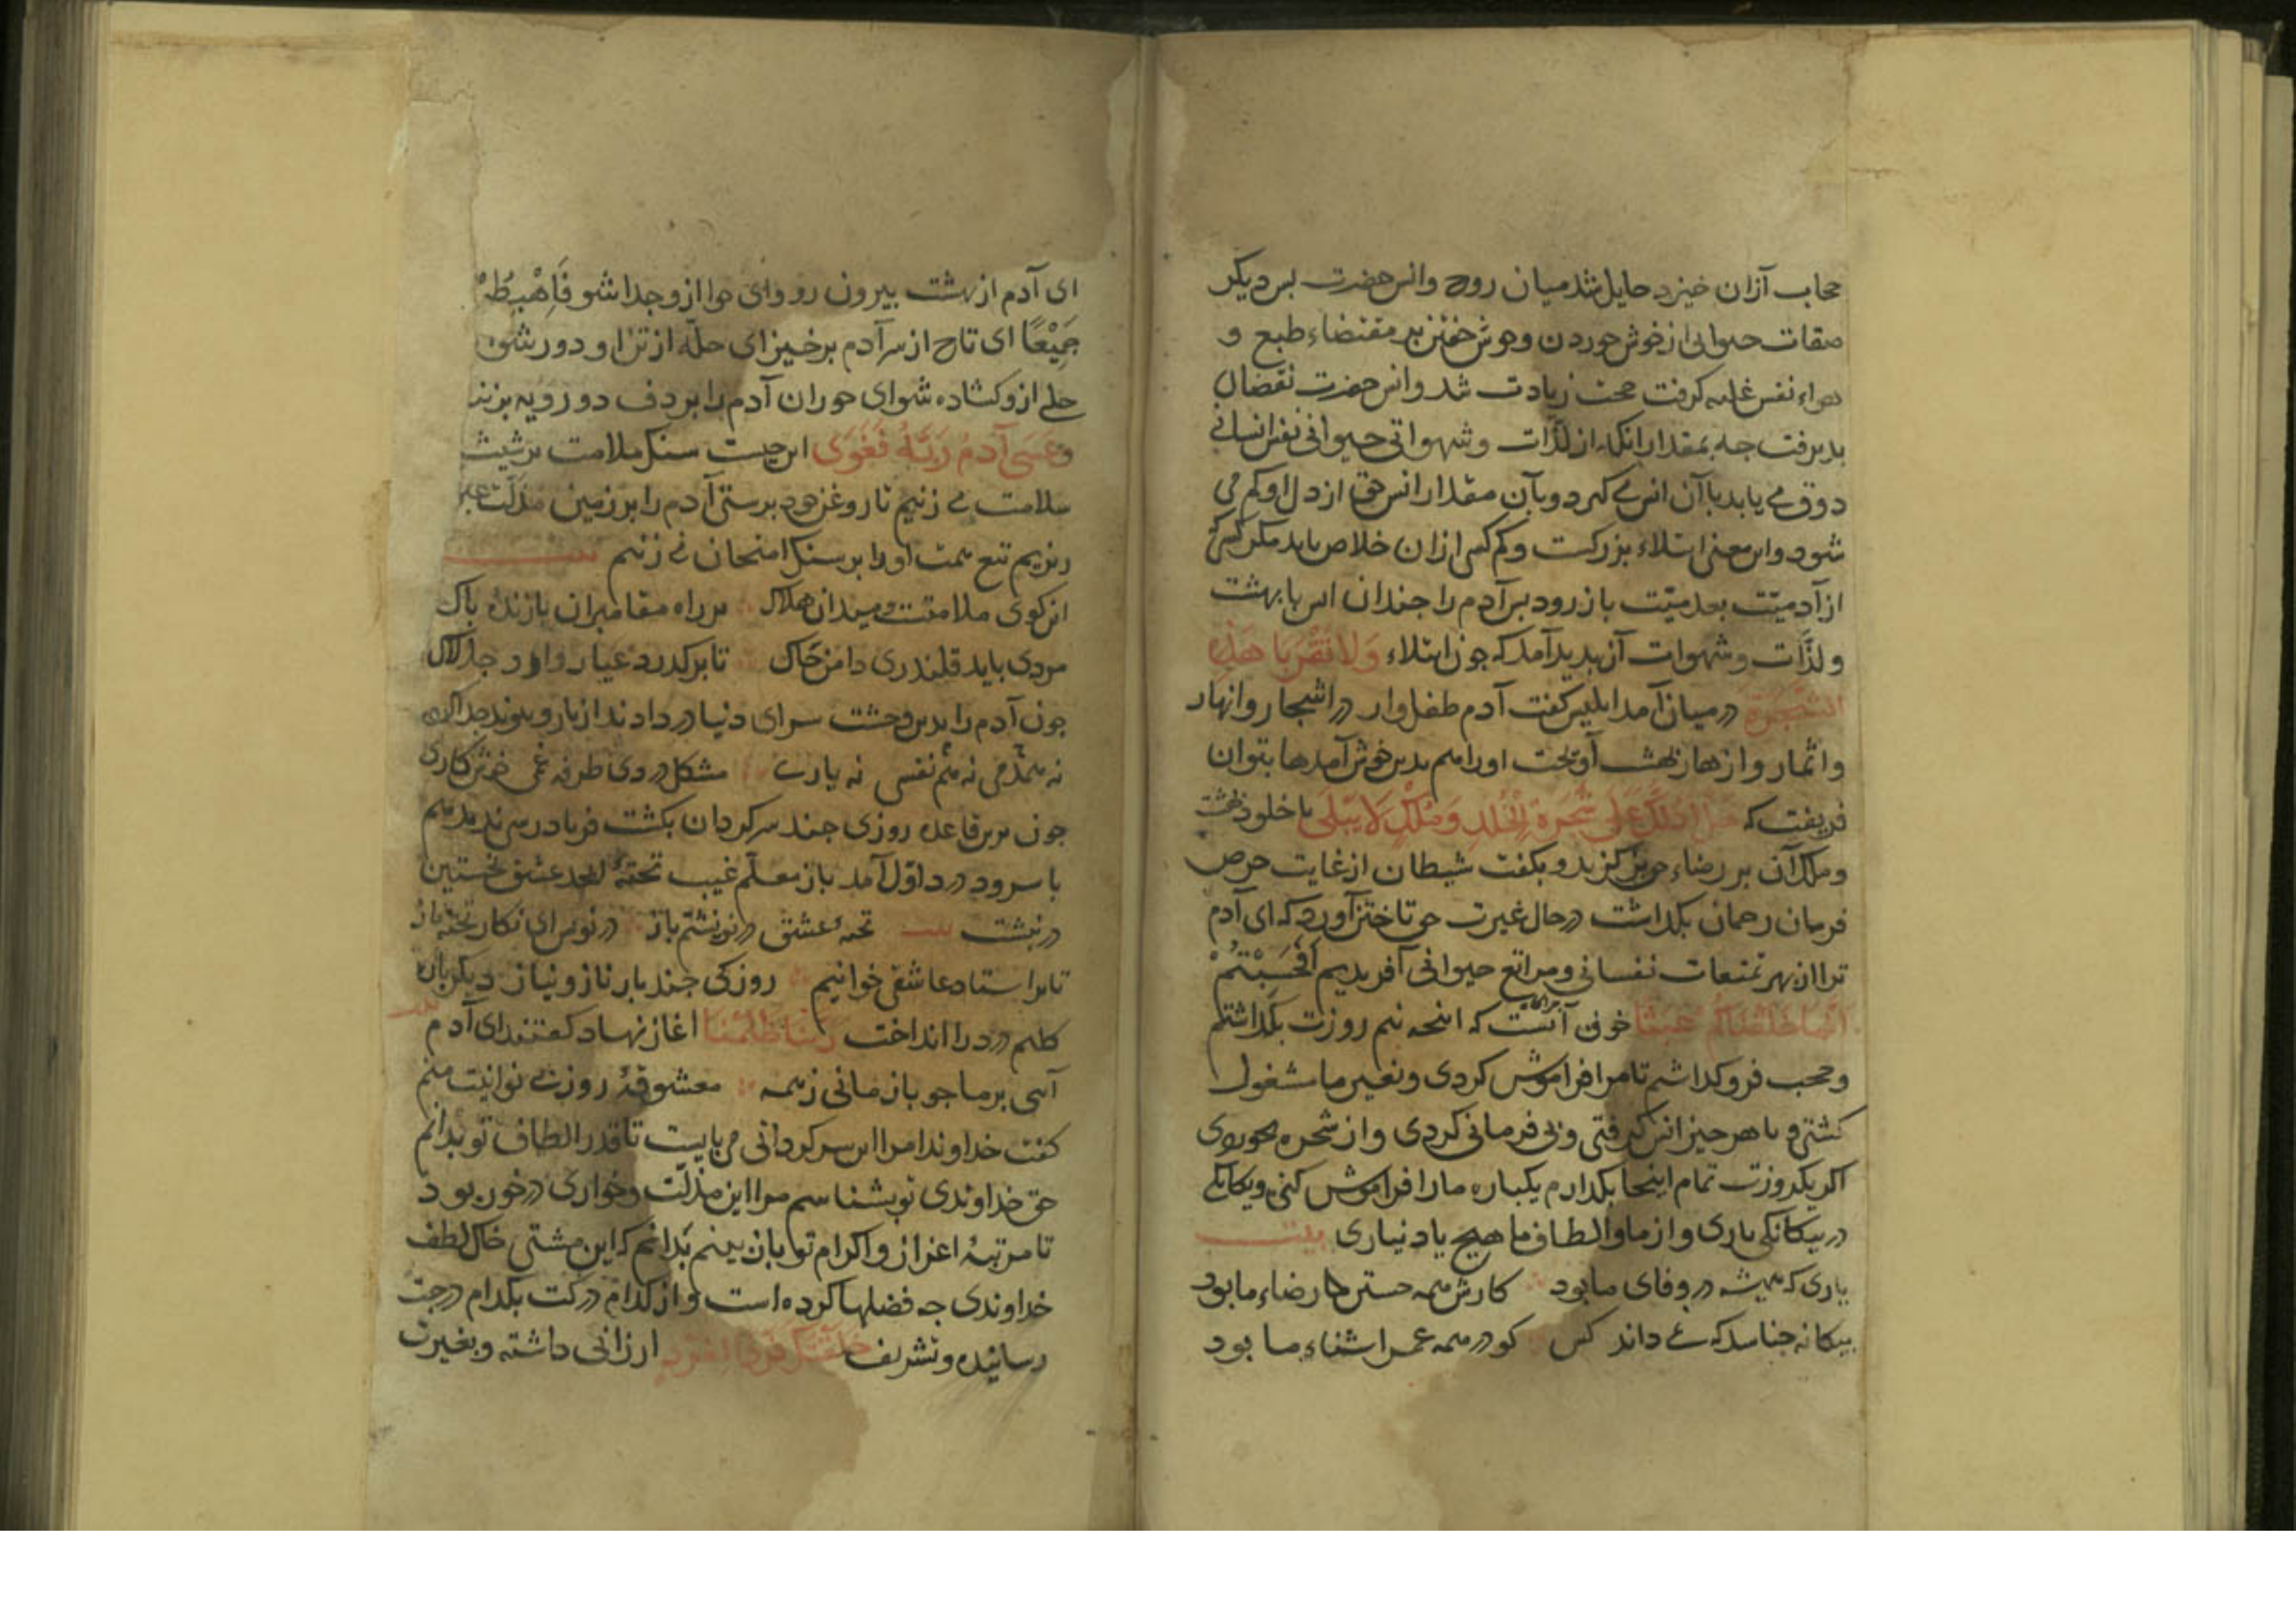 حجاب آزان خیزد حایل شد میان روح وانس حضرت بس دیکر
صفات حیوانی از خوش خوردن وخوش خفتن بر مقتضاء طبع و
هواء نفس غلبه کرفت محبت زیادت شد وانس حضرت نقصان
بدیرفت جه بمقدار انکه از لذّات وشهواتی حیوانی نفس انسانی
ذوق می یابد باآن انس می کیرد وبآن مقدار انس حق از دل او کم می
شود واین معنی ابتلاء بزرکست وکم کس ازان خلاص یابد مکر کسی
از آدمیّت بازرود بس آدم را جندان انس با بهشت
ولذّات وشهوات آن بدید آمد که جون ابتلاء وَلا تَقْرَبا هَذِهِ
الشَّجَرَة در میان آمد ابلیس کفت آدم طفل وار در اشجار وانهار
واثمار وازهار بهشت آویخت اورا هم بدین خوش آمدها بتوان
فریفت که هَل اَدُلُّكَ عَلَى شَجَرَةِ الْخُلْدِ وَمُلْكٍ لا يَبْلَى با خلود بهشت
وملک آن بر رضاء حق بر کزید وبکفت شیطان از غایت حرص
فرمان رحمان بکداشت در حال غیرت حق تاختن آورد که ای آدم
ترا از بهر تمتعات نفسانی ومراتع حیوانی آفریدیم اَفَحَسِبْتُمْ
اَنَّما خَلَقْناکُمْ عَبَثًا خوف آنست که انجه نیم روزت بکداشتم
وحجب فرو کداشتم تا مرا فراموش کردی وبغیر ما مشغول
کشتی و با هر جیز انس کرفتی وبی فرمانی کردی واز شجره بخوردی
اکر یکروزت تمام اینجا بکدارم یکباره مارا فراموش کنی ویکانکی
در بیکانکی یاری واز ما والطاف ما هیج یاد نیاری بیت
یاری که همیشه در وفای ما بود کارش همه جستن رضاء ما بود
بیکانه جنان شد که نمی داند کس کو در همه عمر اشناء ما بود
ای آدم از بهشت بیرون رو وای حوا ازو جدا شو فَاهْبِطُ
جَمِيْعًا ای تاج از سر آدم برخیز ای حلّه از تن او دور شو
حلی ازو کشاده شو ای حوران آدم را بر دف دو رویه بزنند
وعَصَى آدَمُ رَبَّهُ فَغَوَى این جیست سنک ملامت بر شیشه
سلامت می زنیم تا روغن خود برستی آدم را بر زمین مذلّت
ریزیم تیغ همت اورا بر سنک امتحان می زنیم بیت
این کوی ملامتست ومیدان هلاک بر راه مقامران بازنده باک
مردی باید قلندری دامن جاک تا بر کدرد عیار وار وجالاک
جون آدم را بدین وحشت سرای دنیا در دادند از یار وبیوند جدا کردند
نه همدمی نه هم نفسی نه یاری مشکل دردی طرفه غمی خوش کاری
جون برین قاعده روزی جند سرکردان بکشت فریاد رسی ندید هم
با سر ودرد اوّل آمد باز معلّم غیب تختهٔ ابجد عشق نخستین
در نبشت بیت تختهٔ عشق در نوشتم باز در نویس ای نکار تخته باز
تا بر استاد عاشقی خوانیم روزکی جند باز ناز ونیاز دیکر باره
درد را انداخت رَبَّنا ظَلَمْنا اغاز نهاد کفتند ای آدم
آسی بر ما جو باز مانی ز همه معشوقهٔ روز بی نوائیت منم
کفت خداوندا مرا این سرکردانی می بایست تا قدر الطاف تو بدانم
حق خداوندی تو بشناسم مرا این مذلّت وخواری در خور بود
تا مرتبهٔ اعزاز واکرام تو باز بینم بدانم که این مشتی خاک لطف
خداوندی جه فضلها کرده است واز کدام درکت بکدام درجت
رسانیده وتشریف ارزانی داشته وبغیرت